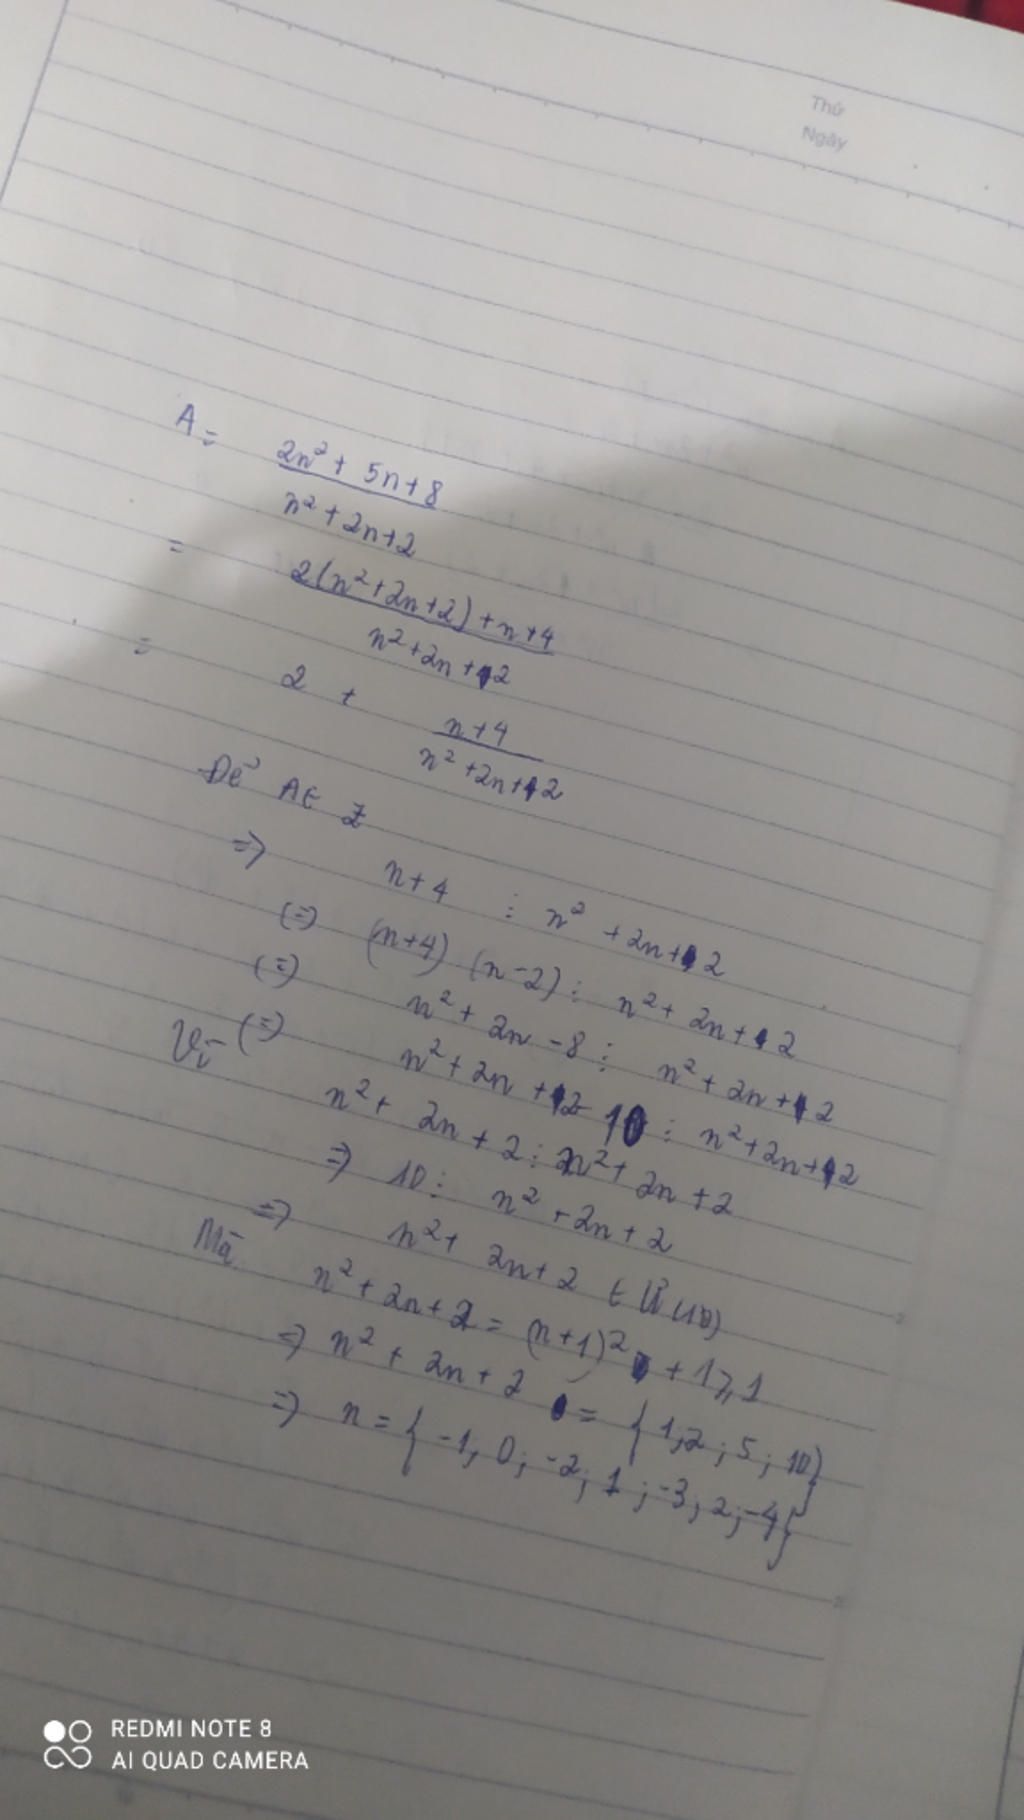 Thứ
Ngày
A = 2n² + 5n + 8
n² + 2n + 2
= 2(n² + 2n + 2) + n + 4
n² + 2n + 2
= 2 + n + 4
n² + 2n + 2
Để A ∈ Z
=> n + 4 ⋮ n² + 2n + 2
(=) (n+4) (n-2) ⋮ n² + 2n + 2
(=) n² + 2n - 8 ⋮ n² + 2n + 2
(=) n² + 2n + 2 - 10 ⋮ n² + 2n + 2
Vì n² + 2n + 2 ⋮ n² + 2n + 2
=> 10 ⋮ n² + 2n + 2
=> n² + 2n + 2 ∈ Ư(10)
Mà n² + 2n + 2 = (n+1)² + 1 ⩾ 1
=> n² + 2n + 2 = {1,2 ; 5 ; 10}
=> n = {-1, 0 ; -2 ; 1 ; -3 ; 2 ; -4}
REDMI NOTE 8
AI QUAD CAMERA